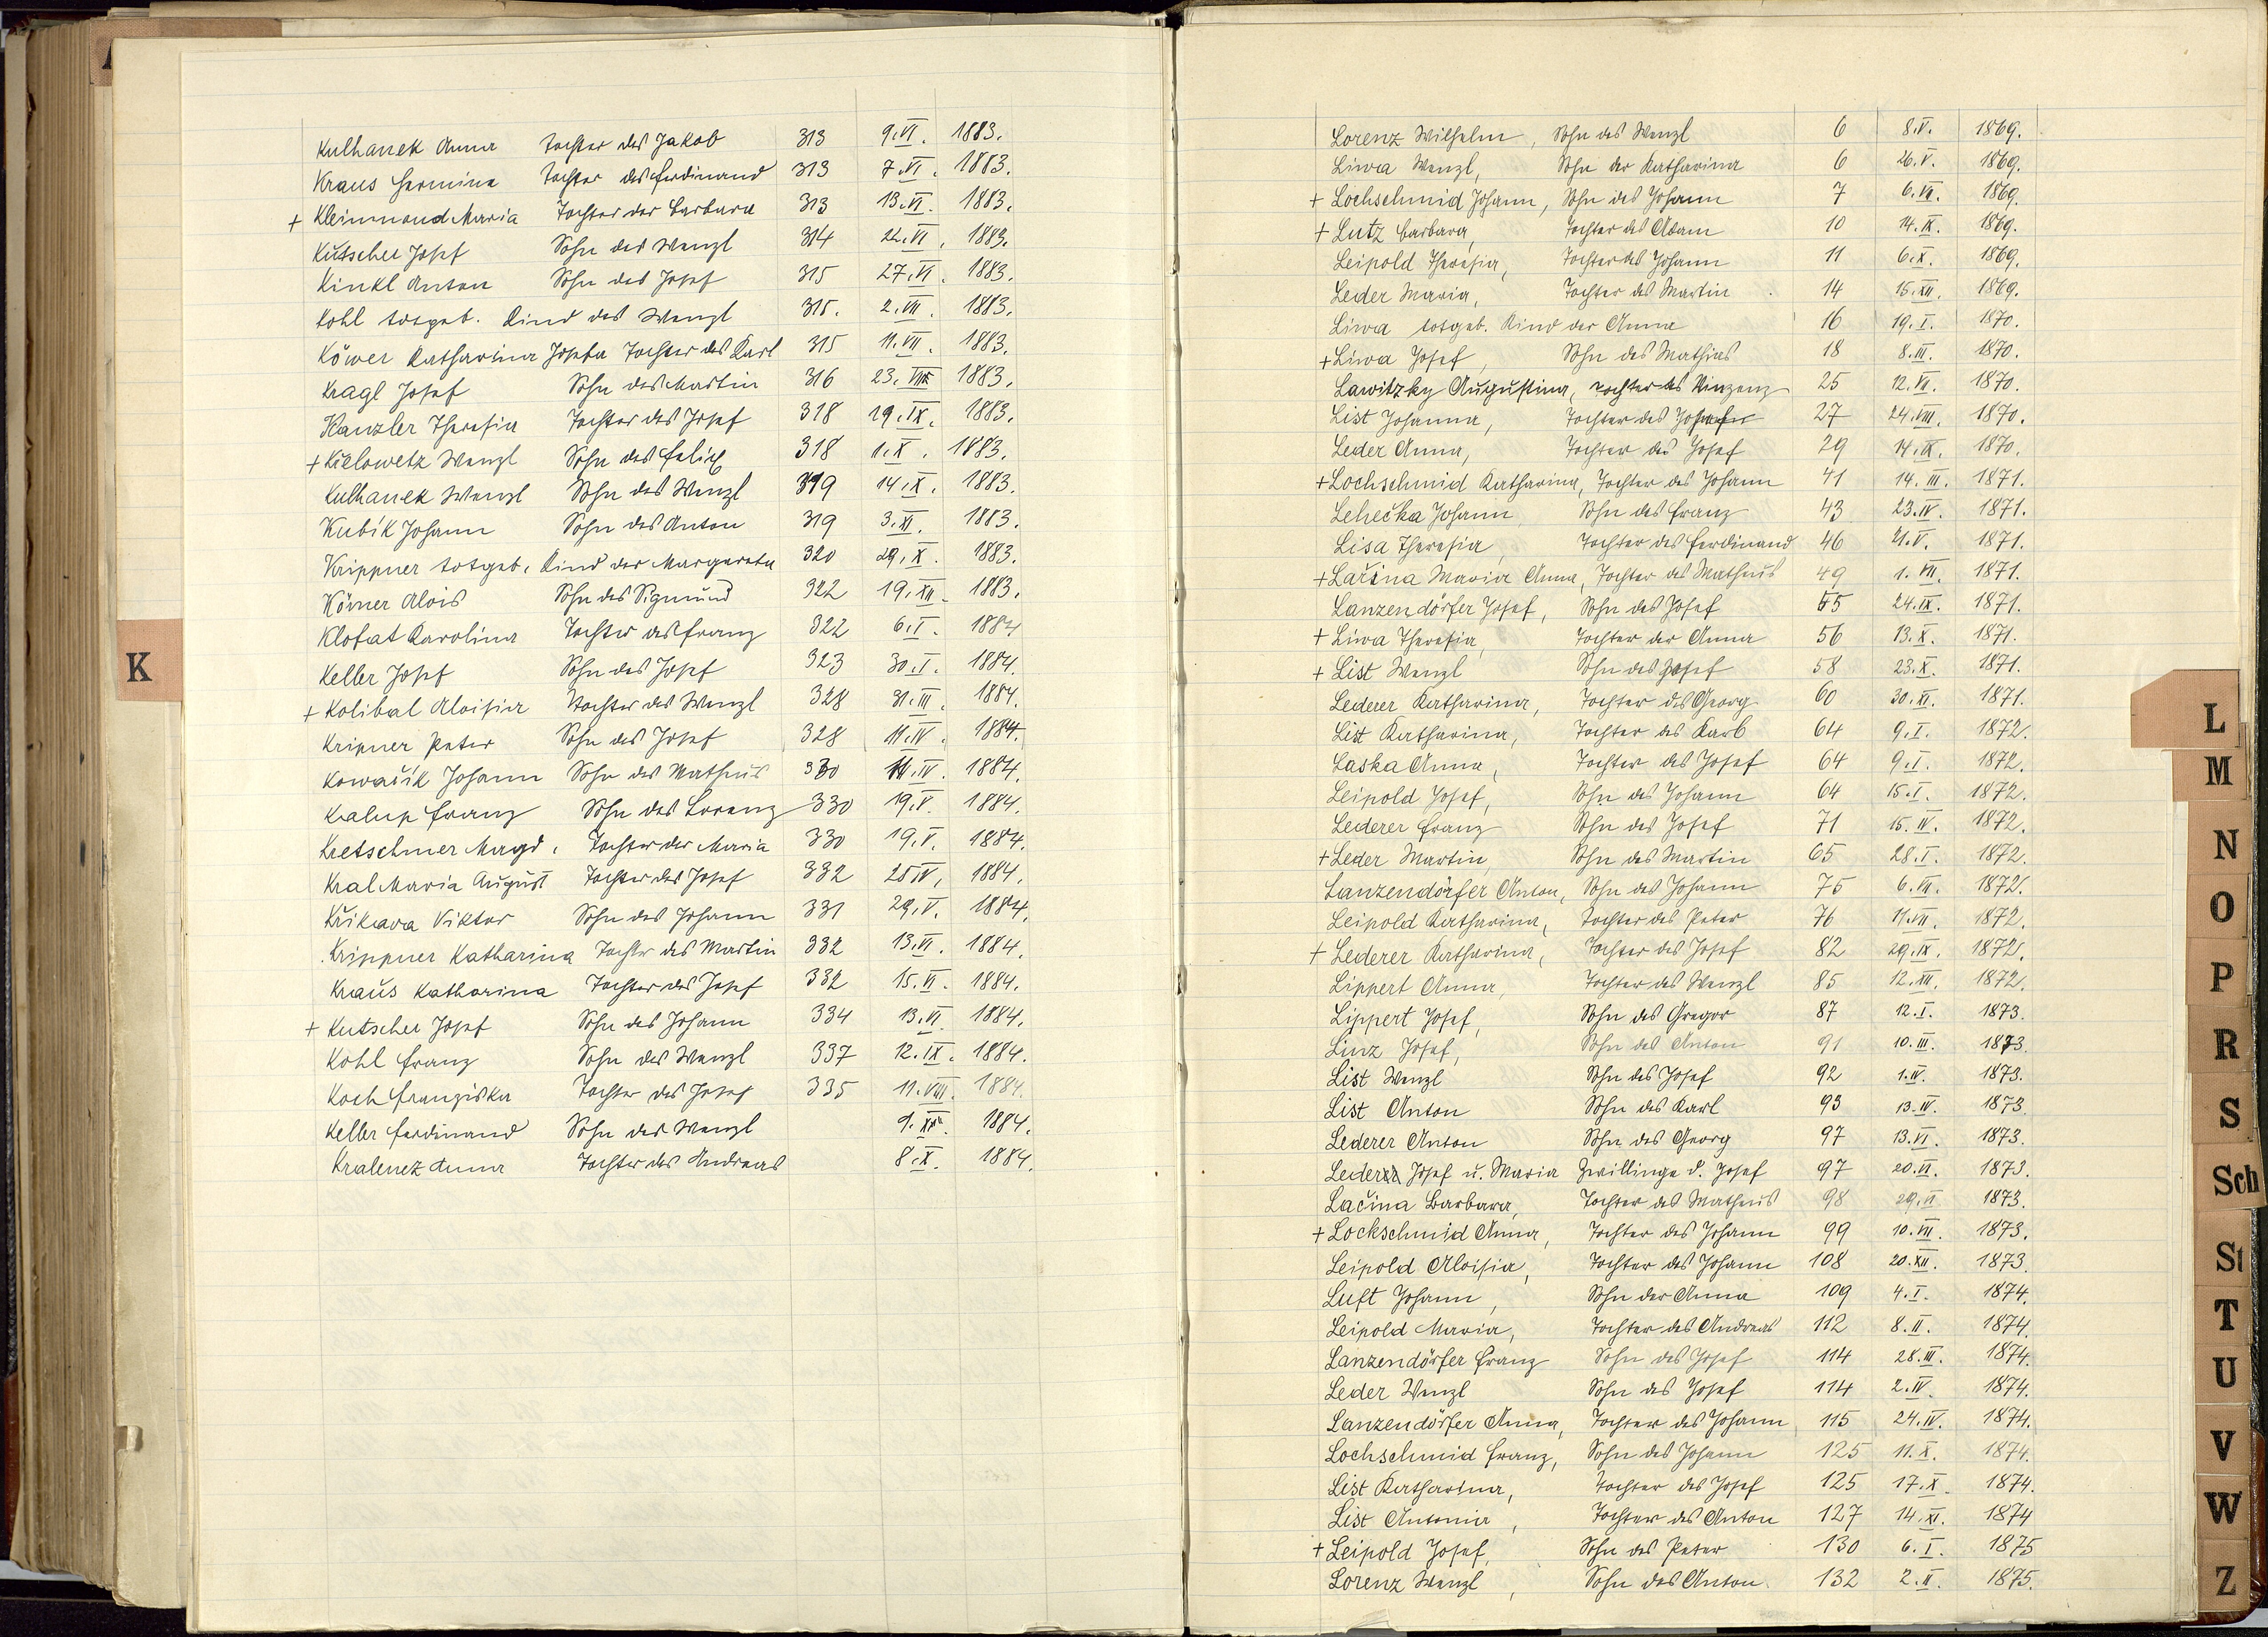 Kulhanek Anna Tochter des Jakob 313 9.VI. 1883.
Kraus Hermine Tochter des Ferdinand 313 7.VI. 1883.
+ Kleinmond Maria Tochter der Barbara 313 13.VI. 1883.
Kutscher Josef Sohn des Wenzl 314 22.VI. 1883.
Kinkl Anton Sohn des Josef 315 27.VI. 1883.
Kohl totgeb. Kind des Wenzl 315. 2.VII. 1883.
Köwer Katharina Josefa Tochter des Karl 315 11.VII. 1883.
Kragl Josef Sohn des Martin 316 23.VII. 1883.
Kanzler Theresia Tochter des Josef 318 19.IX. 1883.
+ Kielowetz Wenzl Sohn des Felix 318 1.X. 1883.
Kulhanek Wenzl Sohn des Wenzl 319 14.X. 1883.
Kubík Johann Sohn des Anton 319 3.XI. 1883.
Krippner totgeb. Kind der Margareta 320 29.X. 1883.
Körner Alois Sohn des Sigmund 322 19.XII. 1883.
Klofat Karolina Tochter des Franz 322 6.I. 1884
Keller Josef Sohn des Josef 323 30.I. 1884.
+ Kolibal Aloisia Tochter des Wenzl 328 31.III. 1884.
Kripner Peter Sohn des Josef 328 11.IV. 1884.
Kowařík Johann Sohn des Matheus 330 11.IV. 1884.
Kalup Franz Sohn des Lorenz 330 19.V. 1884.
Kretschmer Magd. Tochter der Maria 330 19.V. 1884.
Kral Maria August Tochter des Josef 332 25 IV. 1884.
Křikava Viktor Sohn des Johann 331 29.V. 1884.
Krippner Katharina Tochter des Martin 332 13.VI. 1884.
Kraus Katharina Tochter des Josef 332 15.VI. 1884.
+ Kutscher Josef Sohn des Johann 334 13.VI. 1884.
Kohl Franz Sohn des Wenzl 337 12.IX. 1884.
Koch Franziska Tochter des Josef 335 11.VIII. 1884.
Keller Ferdinand Sohn des Wenzl 1884.
Kralenez Anna Tochter des Andreas 8.X. 1884.
K
Lorenz Wilhelm, Sohn des Wenzl 6 8.V. 1869.
Liwa Wenzl, Sohn der Katharina 6 26.V. 1869.
+ Lochschmid Johann, Sohn des Johann 7 6.VII. 1869.
+ Lutz Barbara, Tochter des Adam 10 14.IX. 1869.
Leipold Theresia, Tochter des Johann 11 6.X. 1869.
Leder Maria, Tochter des Martin 14 15.XII. 1869.
Liwa totgeb. Kind der Anna 16 19.I. 1870.
+ Liwa Josef, Sohn des Mathias 18 8.III. 1870.
Lawitzky Augustina, Tochter des Vinzenz 25 12.VII. 1870.
List Johanna, Tochter des Josef 27 24.VIII. 1870.
Leder Anna, Tochter des Josef 29 14.IX. 1870.
+ Lochschmid Katharina, Tochter des Johann 41 14.III. 1871.
Lehečka Johann, Sohn des Franz 43 23.IV. 1871.
Lisa Theresia, Tochter des Ferdinand 46 21.V. 1871.
+ Lačina Maria Anna, Tochter des Matheus 49 1.VII. 1871.
Lanzendörfer Josef, Sohn des Josef 55 24.IX. 1871.
+ Liwa Theresia, Tochter der Anna 56 13.X. 1871.
+ List Wenzl Sohn des Josef 58 23.X. 1871.
Lederer Katharina, Tochter des Georg 60 30.XI. 1871.
List Katharina, Tochter des Karl 64 9.I. 1872.
Laska Anna, Tochter des Josef 64 9.I. 1872.
Leipold Josef, Sohn des Johann 64 15.I. 1872.
Lederer Franz Sohn des Josef 71 15.IV. 1872.
+ Leder Martin, Sohn des Martin 65 28.I. 1872.
Lanzendörfer Anton, Sohn des Johann 75 6.VII. 1872.
Leipold Katharina, Tochter des Peter 76 11.VII. 1872.
+ Lederer Katharina, Tochter des Josef 82 29.IX. 1872.
Lippert Anna, Tochter des Wenzl 85 12.XII. 1872.
Lippert Josef, Sohn des Gregor 87 12.I. 1873.
Linz Josef, Sohn des Anton 91 10.III. 1873.
List Wenzl Sohn des Josef 92 1.IV. 1873.
List Anton Sohn des Karl 93 13.IV. 1873.
Lederer Anton Sohn des Georg 97 13.VI. 1873.
Leder Josef u. Maria Zwillinge d. Josef 97 20.VI. 1873.
Lačina Barbara, Tochter des Matheus 98 29.VI 1873.
+ Lockschmid Anna, Tochter des Johann 99 10.VII. 1873.
Leipold Aloisia, Tochter des Johann 108 20.XII. 1873.
Luft Johann, Sohn der Anna 109 4.I. 1874.
Leipold Maria, Tochter des Andreas 112 8.II. 1874.
Lanzendörfer Franz Sohn des Josef 114 28.III. 1874.
Leder Wenzl Sohn des Josef 114 2.IV. 1874.
Lanzendörfer Anna, Tochter des Johann 115 24.IV. 1874.
Lochschmid Franz, Sohn des Johann 125 11.X. 1874.
List Katharina, Tochter des Josef 125 17.X. 1874.
List Antonia, Tochter des Anton 127 14.XI. 1874
+ Leipold Josef, Sohn des Peter 130 6.I. 1875
Lorenz Wenzl, Sohn des Anton 132 2.II. 1875.
L
M
N
O
P
R
S
Sch
St
T
U
V
W
Z